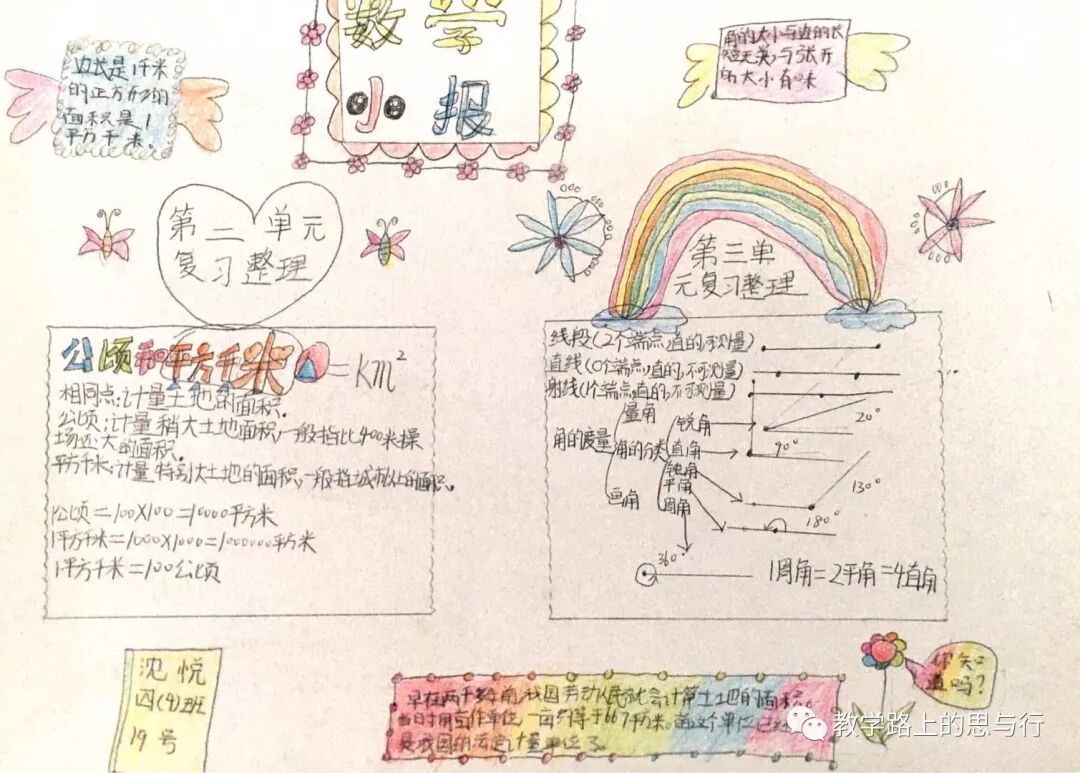 数学
小报
边长是1千米
的正方形的
面积是1
平方千米。
角的大小与边的长
短无关,与张开
的大小有关
第二单元
复习整理
第三单
元复习整理
公顷和平方千米 = km²
相同点:计量土地的面积.
公顷:计量稍大土地面积,一般指比400米操
场还大的面积.
平方千米:计量特别大土地的面积,一般指城市以上的面积.
1公顷=100×100=10000平方米
1平方千米=1000×1000=1000000平方米
1平方千米=100公顷
线段(2个端点,直的,可测量)
直线(0个端点,直的,不可测量)
射线(1个端点,直的,不可测量)
角的度量
量角
角的分类
画角
锐角
直角
钝角
平角
周角
20°
90°
130°
180°
360°
1周角=2平角=4直角
沈悦
四(4)班
19号
早在两千多年前,我国劳动人民就会计算土地的面积。
当时用亩作单位,一亩约等于667平方米。而这个单位已
是我国的法定计量单位了。
你知
道吗?
教学路上的思与行